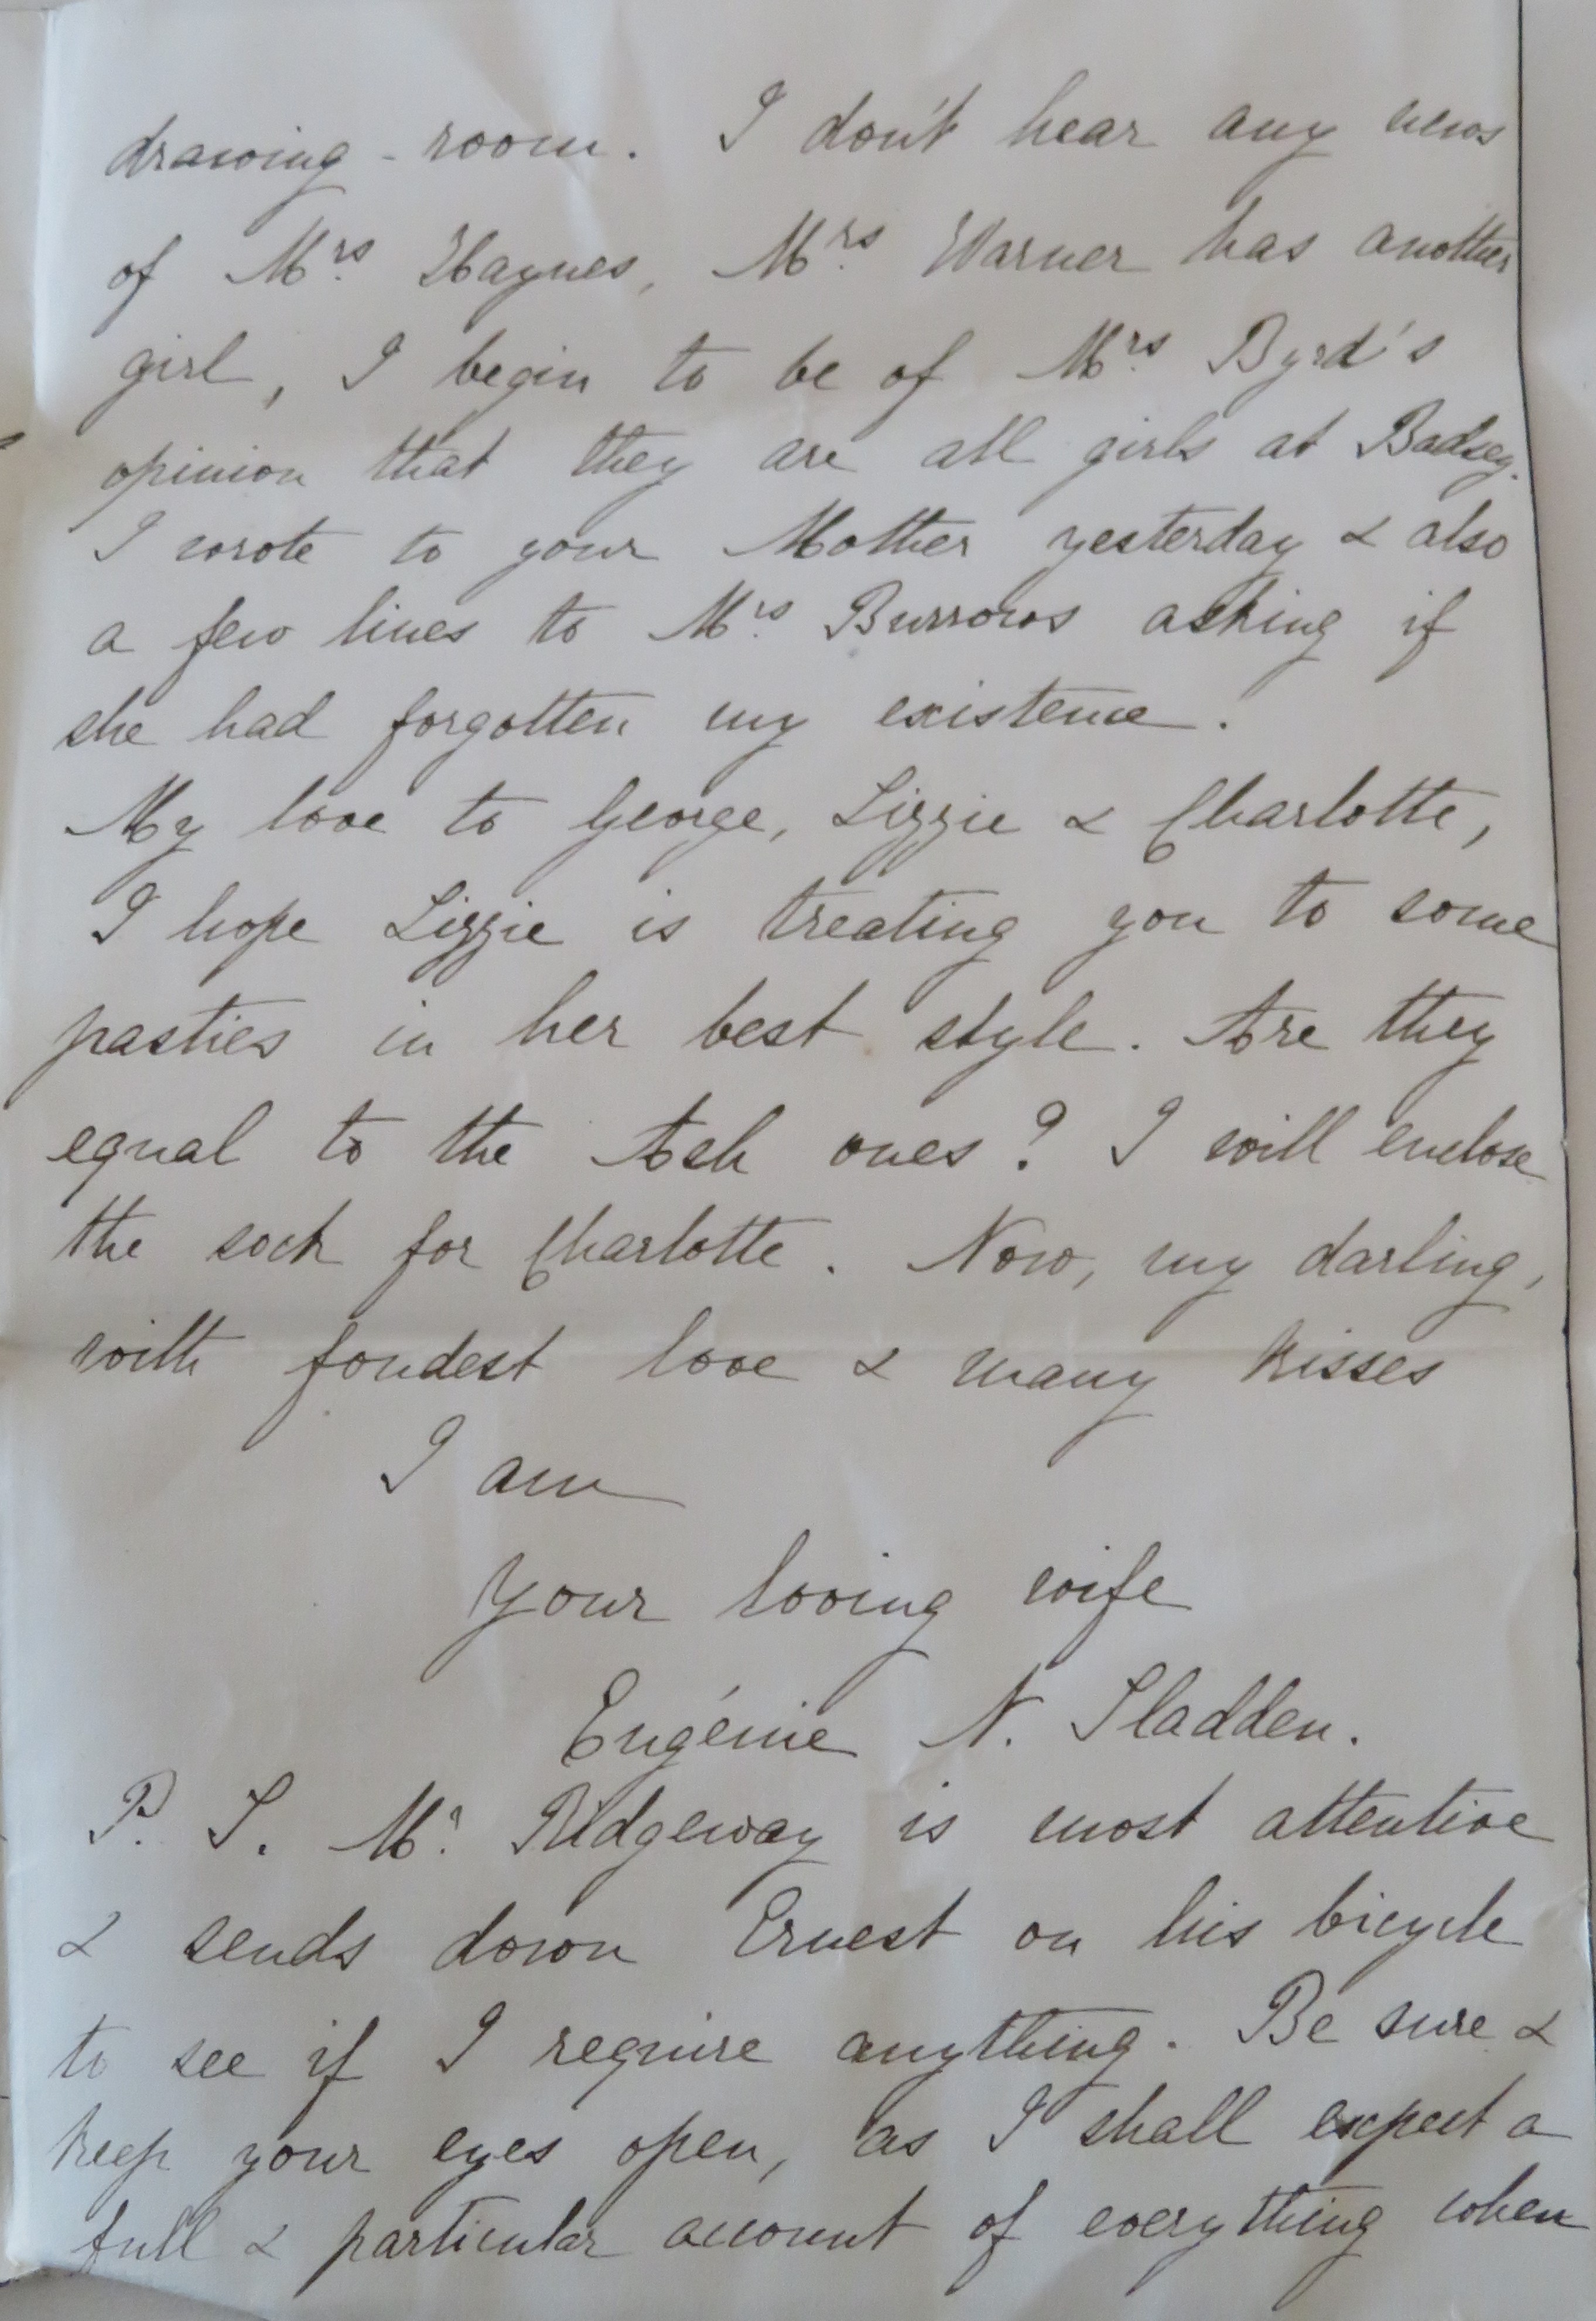 drawing-room. I don't hear any news
of Mrs. Haynes, Mrs. Warner has another
girl, I begin to be of Mrs. Byrd's
opinion that they are all girls at Badsey.
I wrote to your Mother yesterday & also
a few lines to Mrs. Burrows asking if
she had forgotten my existence.
My love to George, Lizzie & Charlotte,
I hope Lizzie is treating you to some
pasties in her best style. Are they
equal to the Ash ones? I will enclose
the sock for Charlotte. Now, my darling,
with fondest love & many kisses
I am
Your loving wife
Eugénie N. Sladden.
P. S. Mr. Ridgeway is most attentive
& sends down Ernest on his bicycle
to see if I require anything. Be sure &
keep your eyes open, as I shall expect a
full & particular account of everything when